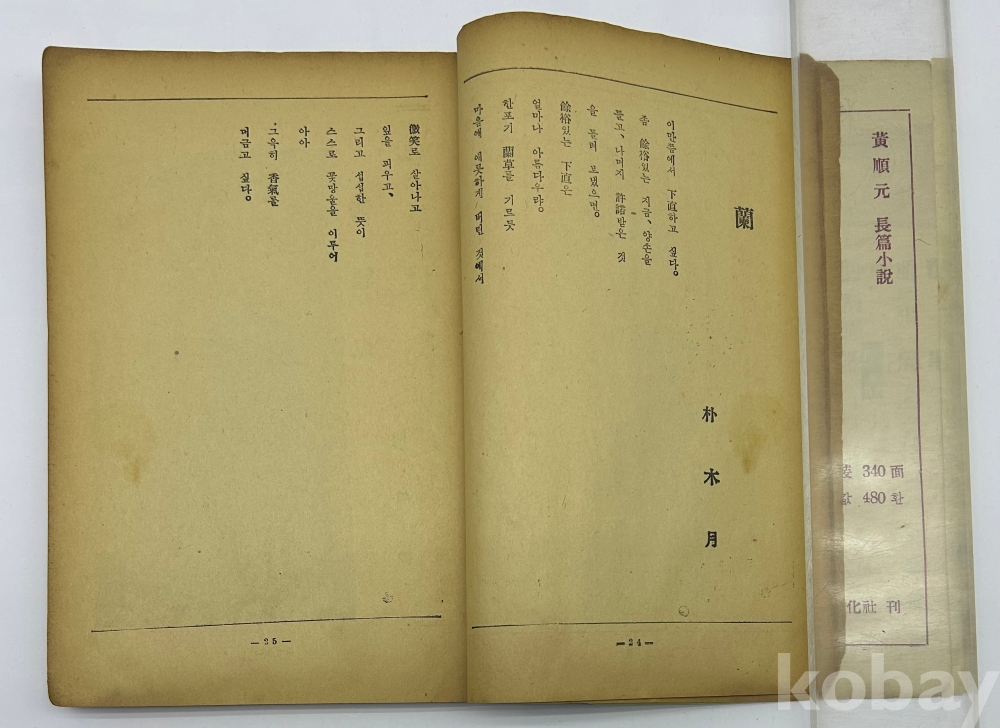 蘭
朴木月
이만쯤에서 下直하고 싶다.
좀 餘裕있는 지금, 양손을
들고, 나머지 許諾받은 것
을 돌려 보냈으면.
餘裕있는 下直은
얼마나 아름다우랴.
한포기 蘭草를 기르듯
마음에 버린 것에서
微笑로 살아나고
잎을 피우고,
그리고 섭섭한 뜻이
스스로 꽃망울을 이루어
아아
그윽히 香氣를
머금고 싶다.
— 24 —
— 25 —
黃順元 長篇小說
340面
480환
化社 刊
kobay